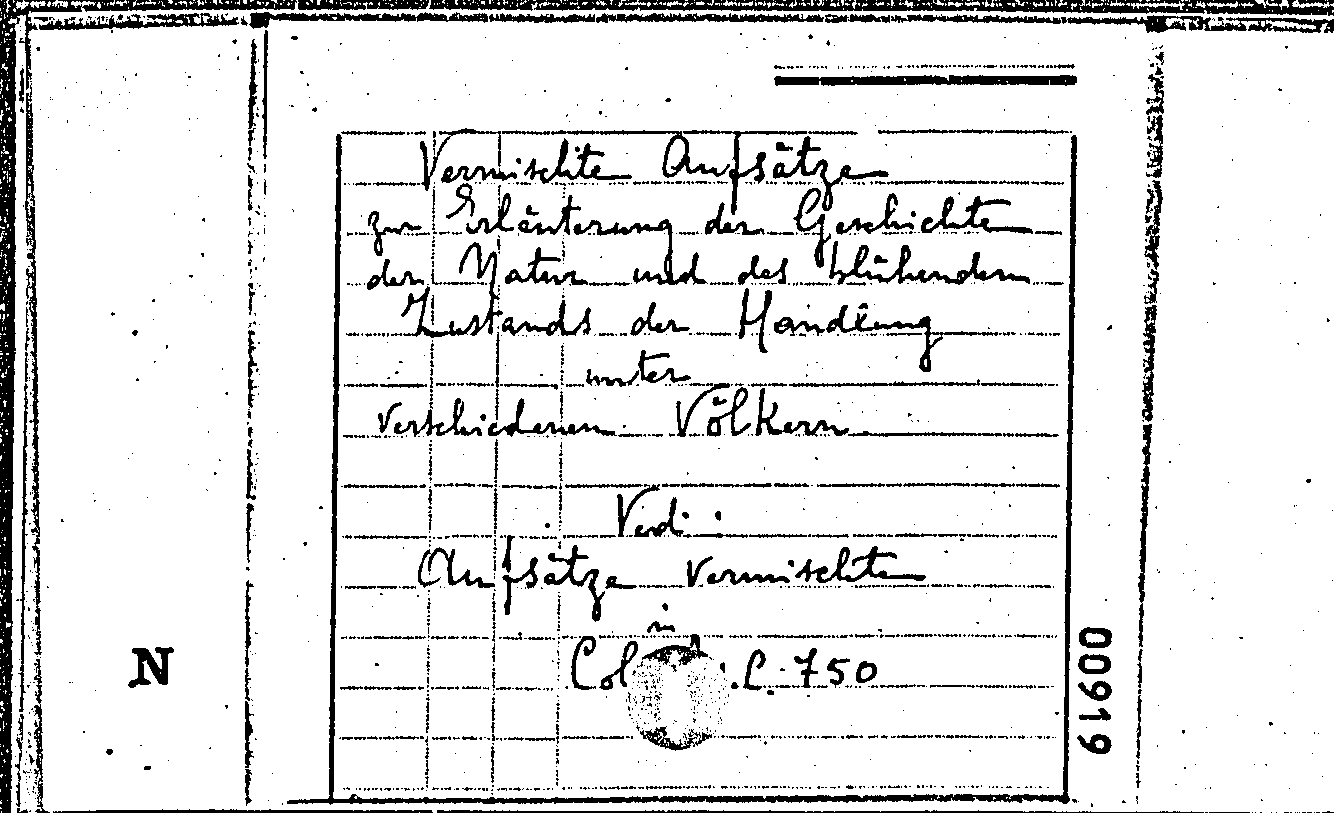 Vermischte Aufsätze
zur Erläuterung der Geschichte
der Natur und des blühenden
Zustands der Handlung
unter
verschiedenen Völkern
Vedi:
Aufsätze vermischte
in
C. 750
N
00919